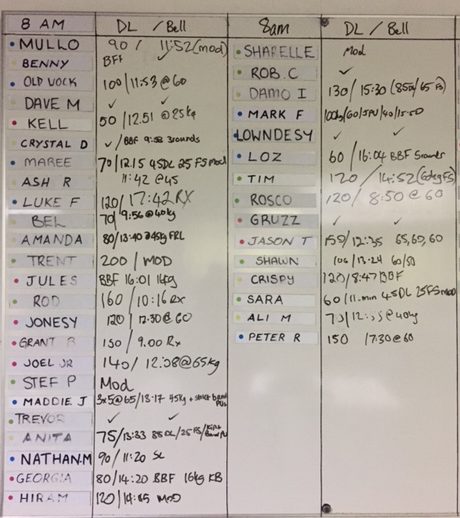 8 AM DL / Bell
MULLO 90 / 11:52 (mod)
BENNY BFF ✓
OLD VOCK 100/11:53 @60
DAVE M ✓ ✓
KELL 50 /12.51 @35kg
CRYSTAL D ✓/BBF 9:58 3rounds
MAREE 70/12.15 45DL 25 FS Mod
ASH R 11:42 @45
LUKE F 120/17:42 RX
BEL 70/9:56 @40kg
AMANDA 80/13:40 @45kg FRL
TRENT 200 / MOD
JULES BBF 16:01 16kg
ROD 160 / 10:16 Rx
JONESY 120 / 12:30 @ 60
GRANT B 130 / 9.00 Rx
JOEL JR 140 / 12:08@65kg
STEF P Mod
MADDIE J 3x5@65/13:17 45kg + band
TREVOR ✓ ✓
ANITA 75/13:33 DL/25 FS/
NATHAN.M 90/11:20 SC
GEORGIA 80/14:20 BBF 16kg KB
HIRAM 120/14:85 MOD
8am DL / Bell
SHARELLE Mod
ROB.C ✓
DAMO I 130 / 15:30 (85DL/65 FS)
MARK F
LOWNDESY ✓ ✓
LOZ 60/16:04 BBF 5rounds
TIM 120 / 14:52 (60kg FS)
ROSCO 120 / 8:50 @ 60
GRUZZ ✓ ✓
JASON T 155/12:35 65,60,60
SHAWN 106 /13:24 60/50
CRISPY 120/8:47 BBF
SARA 60/11.min 45DL 25FS mod
ALI M @40kg
PETER R 150 17:30@60